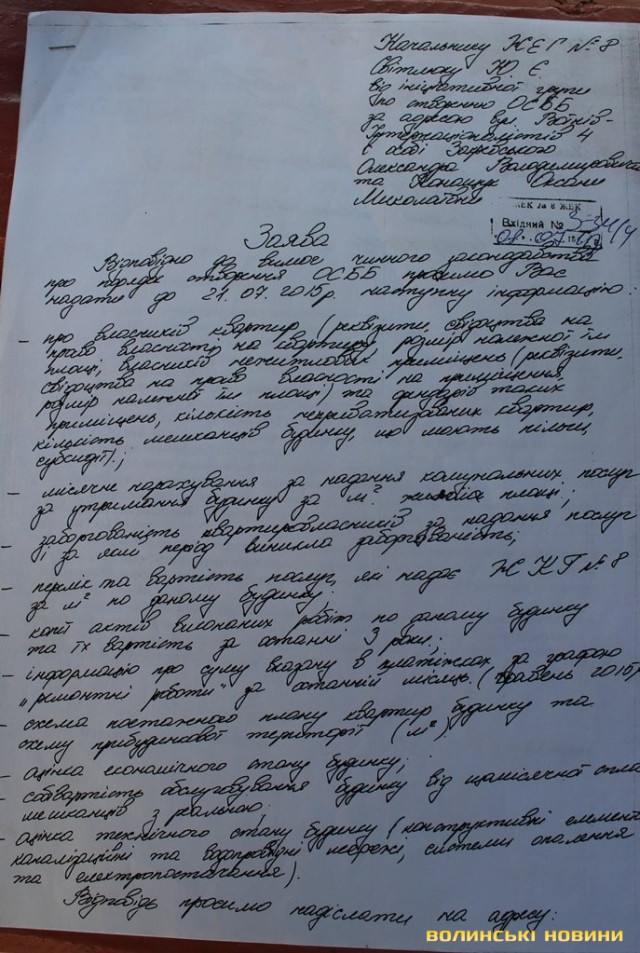 Начальнику ЖЕГ № 8
Світлюку Ю. Є.
від ініціативної групи
по створенню ОСББ
за адресою вул. Воїнів-
Інтернаціоналістів 4
в особі
Олександра Володимировича
та Оксани
Миколаївни
ЖЕК № 8 ЖЕК
Вхідний №
Заява
Відповідно до вимог чинного законодавства
про порядок створення ОСББ просимо Вас
надати до 21.07.2015р. наступну інформацію:
- про власників квартир (реквізити свідоцтва на
право власності на квартиру, розмір належної їм
площі, власників нежитлових приміщень (реквізити
свідоцтва на право власності на приміщення,
розмір належної їм площі) та орендарів таких
приміщень, кількість неприватизованих квартир,
кількість мешканців будинку, що мають пільги,
субсидії).;
- місячне нарахування за надання комунальних послуг
за утримання будинку за м² житлової площі;
- заборгованість квартировласників за надання послуг
і за який період виникла заборгованість;
- перелік та вартість послуг, які надає ЖКП № 8
за м² по даному будинку;
- копії актів виконаних робіт по даному будинку
та їх вартість за останні 3 роки.;
- інформацію про суму вказану в платіжках за графою
„ремонтні роботи" за останній місяць. (травень 2015р
- схема поетажного плану квартир будинку та
схему прибудинкової території (м²)
- оцінка економічного стану будинку;
- собвартість обслуговування будинку від щомісячної спла
мешканців з реальною.
- оцінка технічного стану будинку (конструктивні елемен
каналізаційні та водопровідні мережі, системи опалення
та електропостачання).
Відповідь просимо надіслати на адресу:
ВОЛИНСЬКІ НОВИНИ